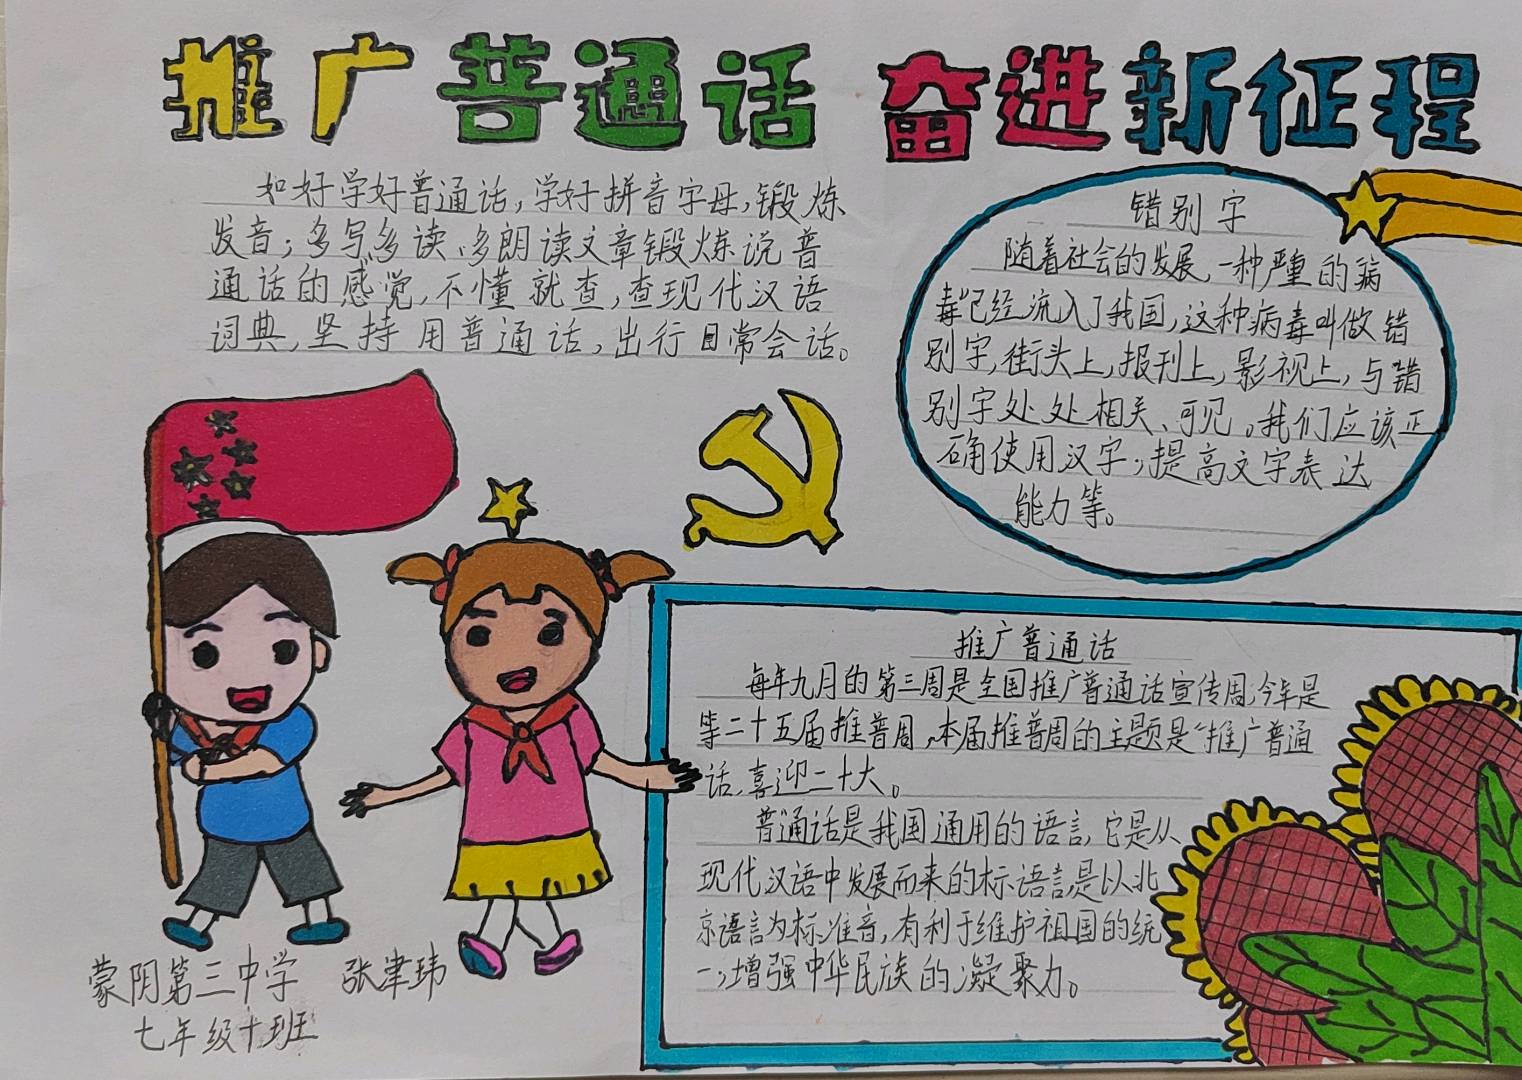 推广普通话 奋进新征程
如好学好普通话,学好拼音字母,锻炼
发音;多写多读、多朗读文章锻炼说普
通话的感觉,不懂就查,查现代汉语
词典,坚持用普通话,出行日常会话。
错别字
随着社会的发展,一种严重的病
毒已经流入了我国,这种病毒叫做错
别字,街头上,报刊上,影视上,与错
别字处处相关、可见。我们应该正
确使用汉字,提高文字表达
能力等。
推广普通话
每年九月的第三周是全国推广普通话宣传周,今年是
第二十五届推普周,本届推普周的主题是“推广普通
话,喜迎二十大。
普通话是我国通用的语言,它是从
现代汉语中发展而来的标语言,是以北
京语言为标准音,有利于维护祖国的统
一,增强中华民族的凝聚力。
蒙阴第三中学 张津玮
七年级十班